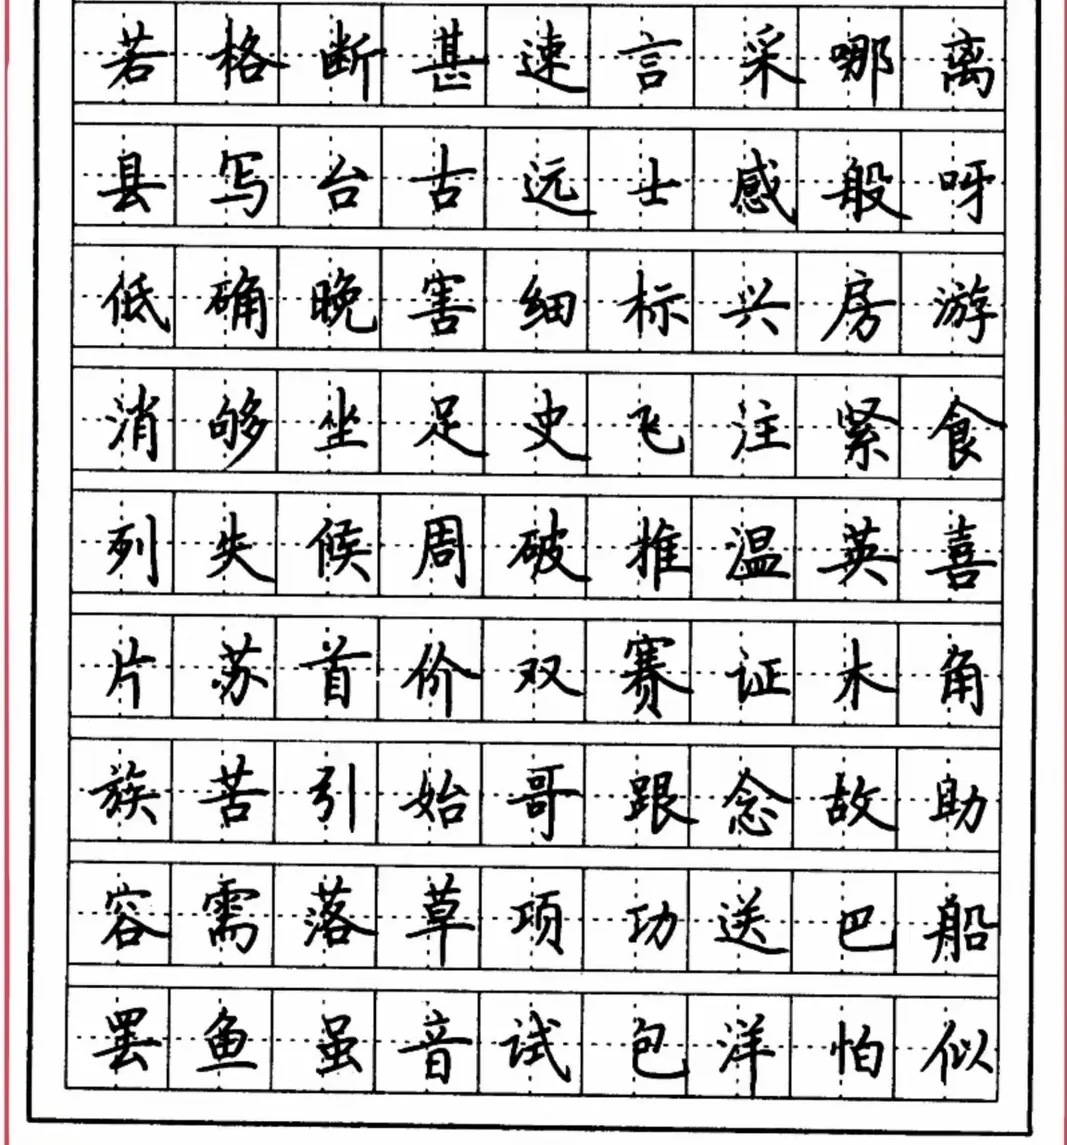 若格断甚速言采哪离
县写台古远士感般呀
低确晚害细标兴房游
消够坐足史飞注紧食
列失候周破推温英喜
片苏首价双赛证木角
族苦引始哥跟念故助
容需落草项功送巴船
罢鱼虽音试包洋怕似